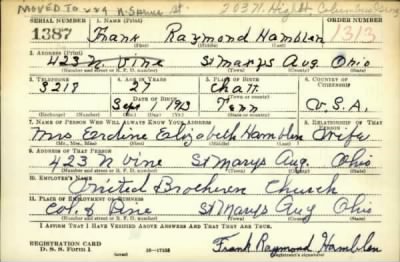 MOVED TO N. Spruce St. 203 N. High St. Columbus
SERIAL NUMBER 1. NAME (Print) ORDER NUMBER
1387 Frank Raymond Hamblen 1313
(First) (Middle) (Last)
2. ADDRESS (Print)
423 N. Vine St Marys Aug. Ohio
(Number and street or R. F. D. number) (Town) (County) (State)
3. TELEPHONE 4. AGE IN YEARS 5. PLACE OF BIRTH 6. COUNTRY OF CITIZENSHIP
3218 27 Chatt.
DATE OF BIRTH
Sept 1913 Tenn U.S.A.
(Mo.) (Day) (Yr.) (State or country)
7. NAME OF PERSON WHO WILL ALWAYS KNOW YOUR ADDRESS 8. RELATIONSHIP OF THAT PERSON
Mrs Erdine Elizabeth Hamblen Wife
(Mr., Mrs., Miss) (First) (Middle) (Last)
9. ADDRESS OF THAT PERSON
423 N Vine St Marys Aug. Ohio
(Number and street or R. F. D. number) (Town) (County) (State)
10. EMPLOYER'S NAME
United Brethren Church
11. PLACE OF EMPLOYMENT OR BUSINESS
Col & Pine St Marys Aug Ohio
(Number and street or R. F. D. number) (Town) (County) (State)
I AFFIRM THAT I HAVE VERIFIED ABOVE ANSWERS AND THAT THEY ARE TRUE.
REGISTRATION CARD
D. S. S. Form 1 Frank Raymond Hamblen
(Registrant's signature)